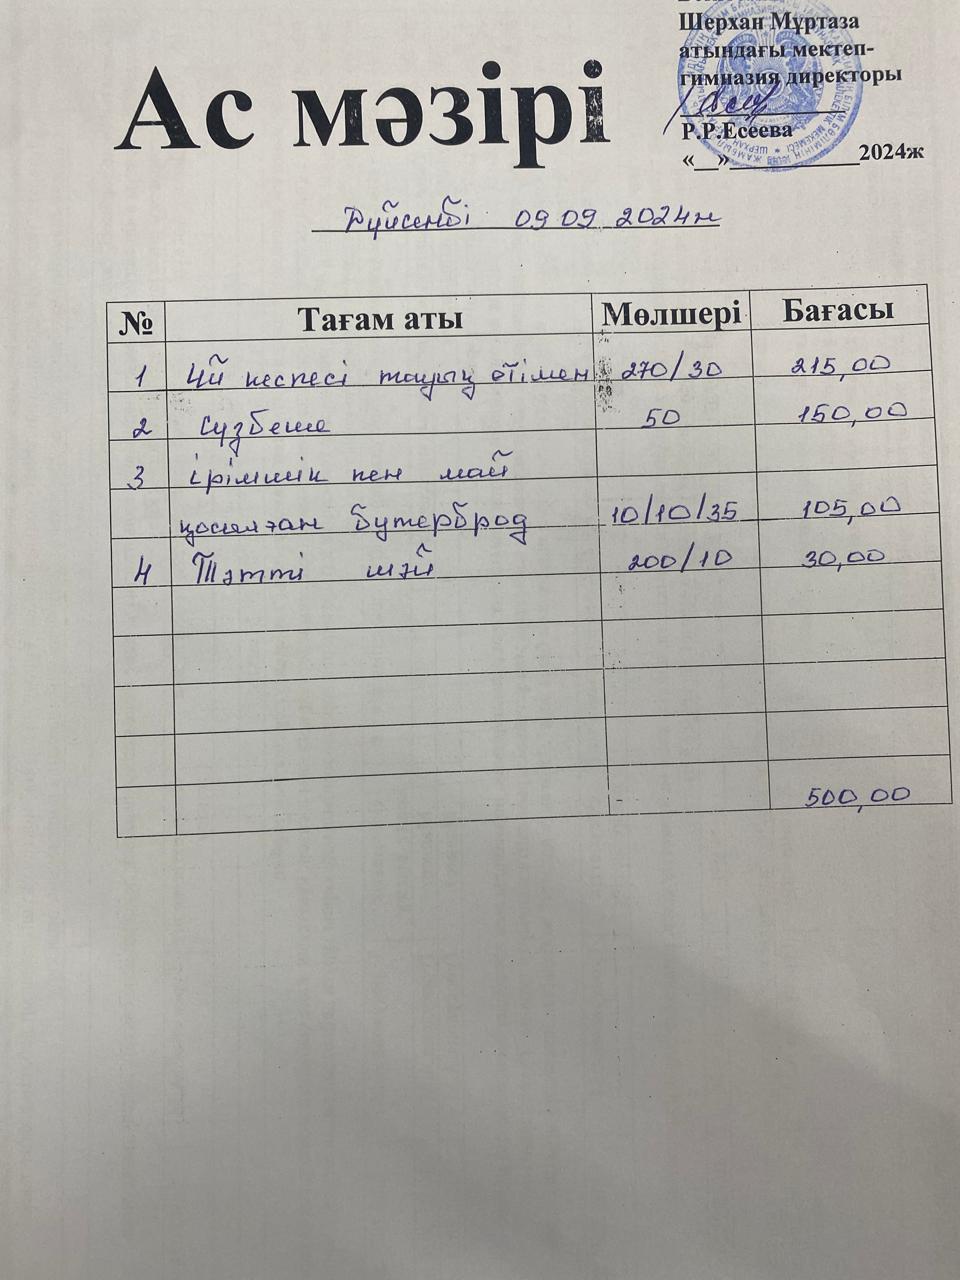 Шерхан Мұртаза
атындағы мектеп-
гимназия директоры
Р.Р.Есеева
«__»___________2024ж
Ас мәзірі
Дүйсенбі 09 09 2024ж
№ Тағам аты Мөлшері Бағасы
1 Үй кеспесі тауық етімен 270/30 215,00
2 Сүзбеше 50 150,00
3 ірімшік пен май
қосылған бутерброд 10/10/35 105,00
4 Тәтті шәй 200/10 30,00
500,00